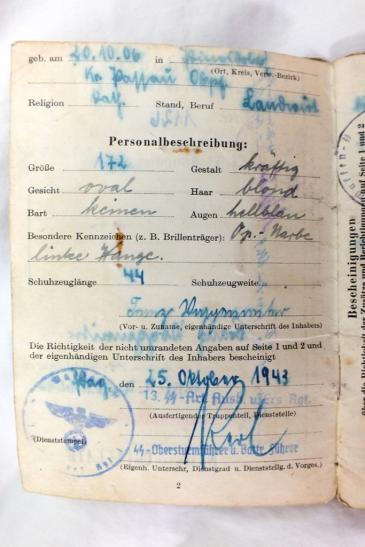 geb. am 20.10.06 in
(Ort, Kreis, Verw.-Bezirk)
Kr. Passau
Religion kath. Stand, Beruf Landwirt
Personalbeschreibung:
Größe 172 Gestalt kräftig
Gesicht oval Haar blond
Bart keinen Augen hellblau
Besondere Kennzeichen (z. B. Brillenträger): Op.-Narbe
linke Wange.
Schuhzeuglänge 44 Schuhzeugweite
Franz
(Vor- u. Zuname, eigenhändige Unterschrift des Inhabers)
Die Richtigkeit der nicht umrandeten Angaben auf Seite 1 und 2 und
der eigenhändigen Unterschrift des Inhabers bescheinigt
Prag, den 25. Oktober 1943
13. SS-Art. Ausb. u. Ers. Rgt.
(Ausfertigender Truppenteil, Dienststelle)
(Dienststempel)
SS-Obersturmführer u. Battr. Führer
(Eigenh. Unterschr., Dienstgrad u. Dienststellg. d. Vorges.)
2
Bescheinigungen